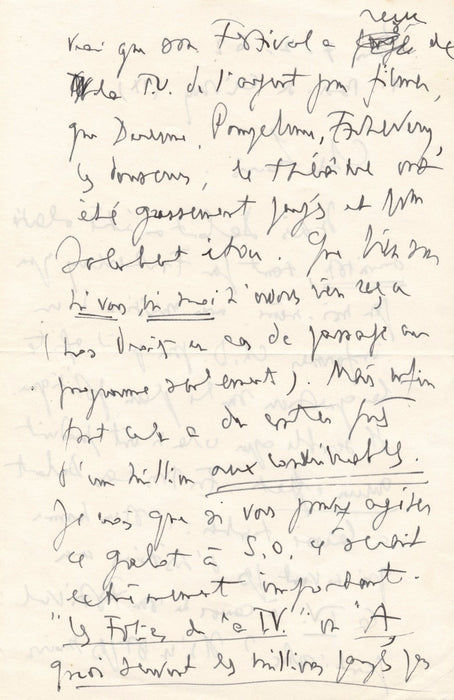 vrai que son Festival a reçu de
la T.V. de l'argent pour filmer,
que
les danseurs, le théâtre ont
été grassement payés et
itou. Que bien sûr
ni vous ni moi n'avons rien reçu
(nos droits en cas de passage au
programme seulement). Mais enfin
tout cela a dû coûter près
d'un million aux contribuables.
Je crois que si vous pouvez agiter
ce grelot à S.O. ce serait
extrêmement important.
"Les Folies de la TV." ou "A
quoi servent les millions payés par